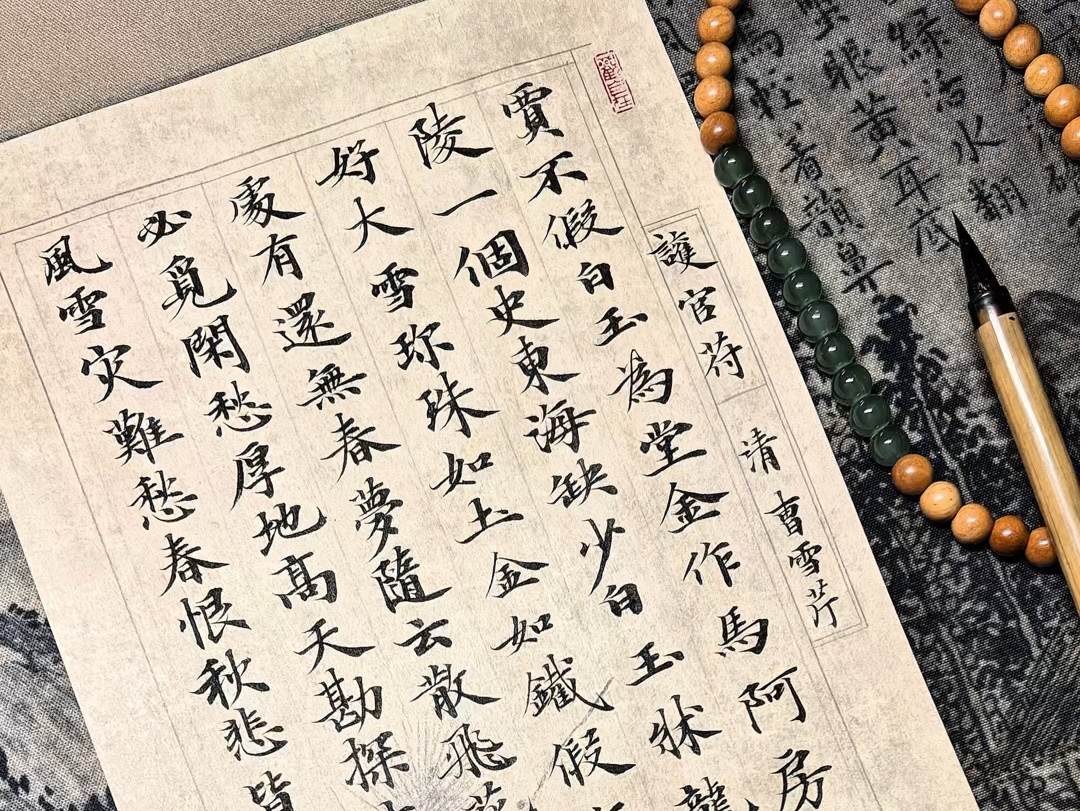 護官苻 清 曹雪芹
賈不假白玉為堂金作馬阿房
陵一個史東海缺少白玉牀龍
好大雪珎珠如土金如鐵假
處有還無春夢隨云散飛
必覓閑愁厚地高天勘探
風雪灾難愁春恨秋悲皆
綠活水翻
眼黃耳底
輕着韻鼻